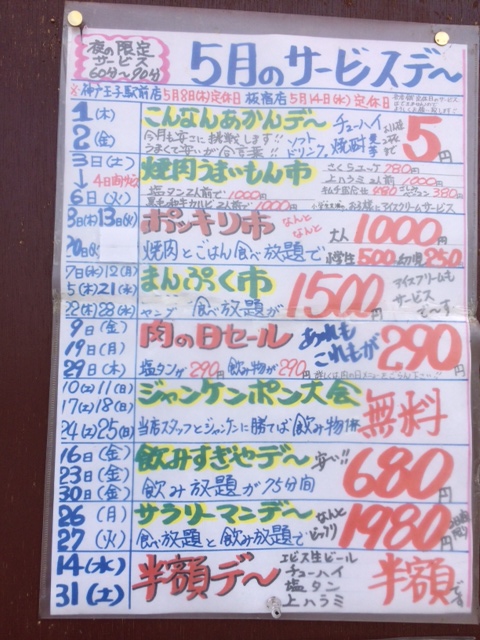 夜の限定
サービス
60分〜90分
5月のサービスデ〜
※神戸王子駅前店 5月8日(木)定休日 板宿店 5月14日(水)定休日
1(木)
2(金)
こんなんあかんデ〜 チューハイ
ソフト
ドリンク 焼酎 5円
3日(土)
↓4日間
6日(火)
焼肉うまいもん市
さくらユッケ 780円
上ハラミ2人前 1000円
塩タン2人前で 1000円
1000円
380円
アイスクリームサービス
8日(木)13日(火)
20日(火)
ポッキリ市 なんと
なんと 大人 1000円
焼肉とごはん食べ放題で 小学生 500円 幼児 250円
7日(水)12(月)
15(木)21(水)
22(木)28(水)
まんぷく市
食べ放題が 1500円
アイスクリームも
サービス
で〜す
9日(金)
19日(月)
29日(木)
肉の日セール あれも
これもが 290円
塩タンが290円 飲み物が290円
10(土)11(日)
17(土)18(日)
24(土)25(日)
ジャンケンポン大会
当店スタッフとジャンケンに勝てば飲み物1杯 無料
16日(金)
23日(金)
30日(金)
飲みすぎやデ〜 安い!!
飲み放題が75分間 680円
26(月)
27(火)
サラリーマンデ〜 なんと
食べ放題と飲み放題で 1980円
14(水)
31(土)
半額デ〜
エビス生ビール
チューハイ
塩タン
上ハラミ
半額です